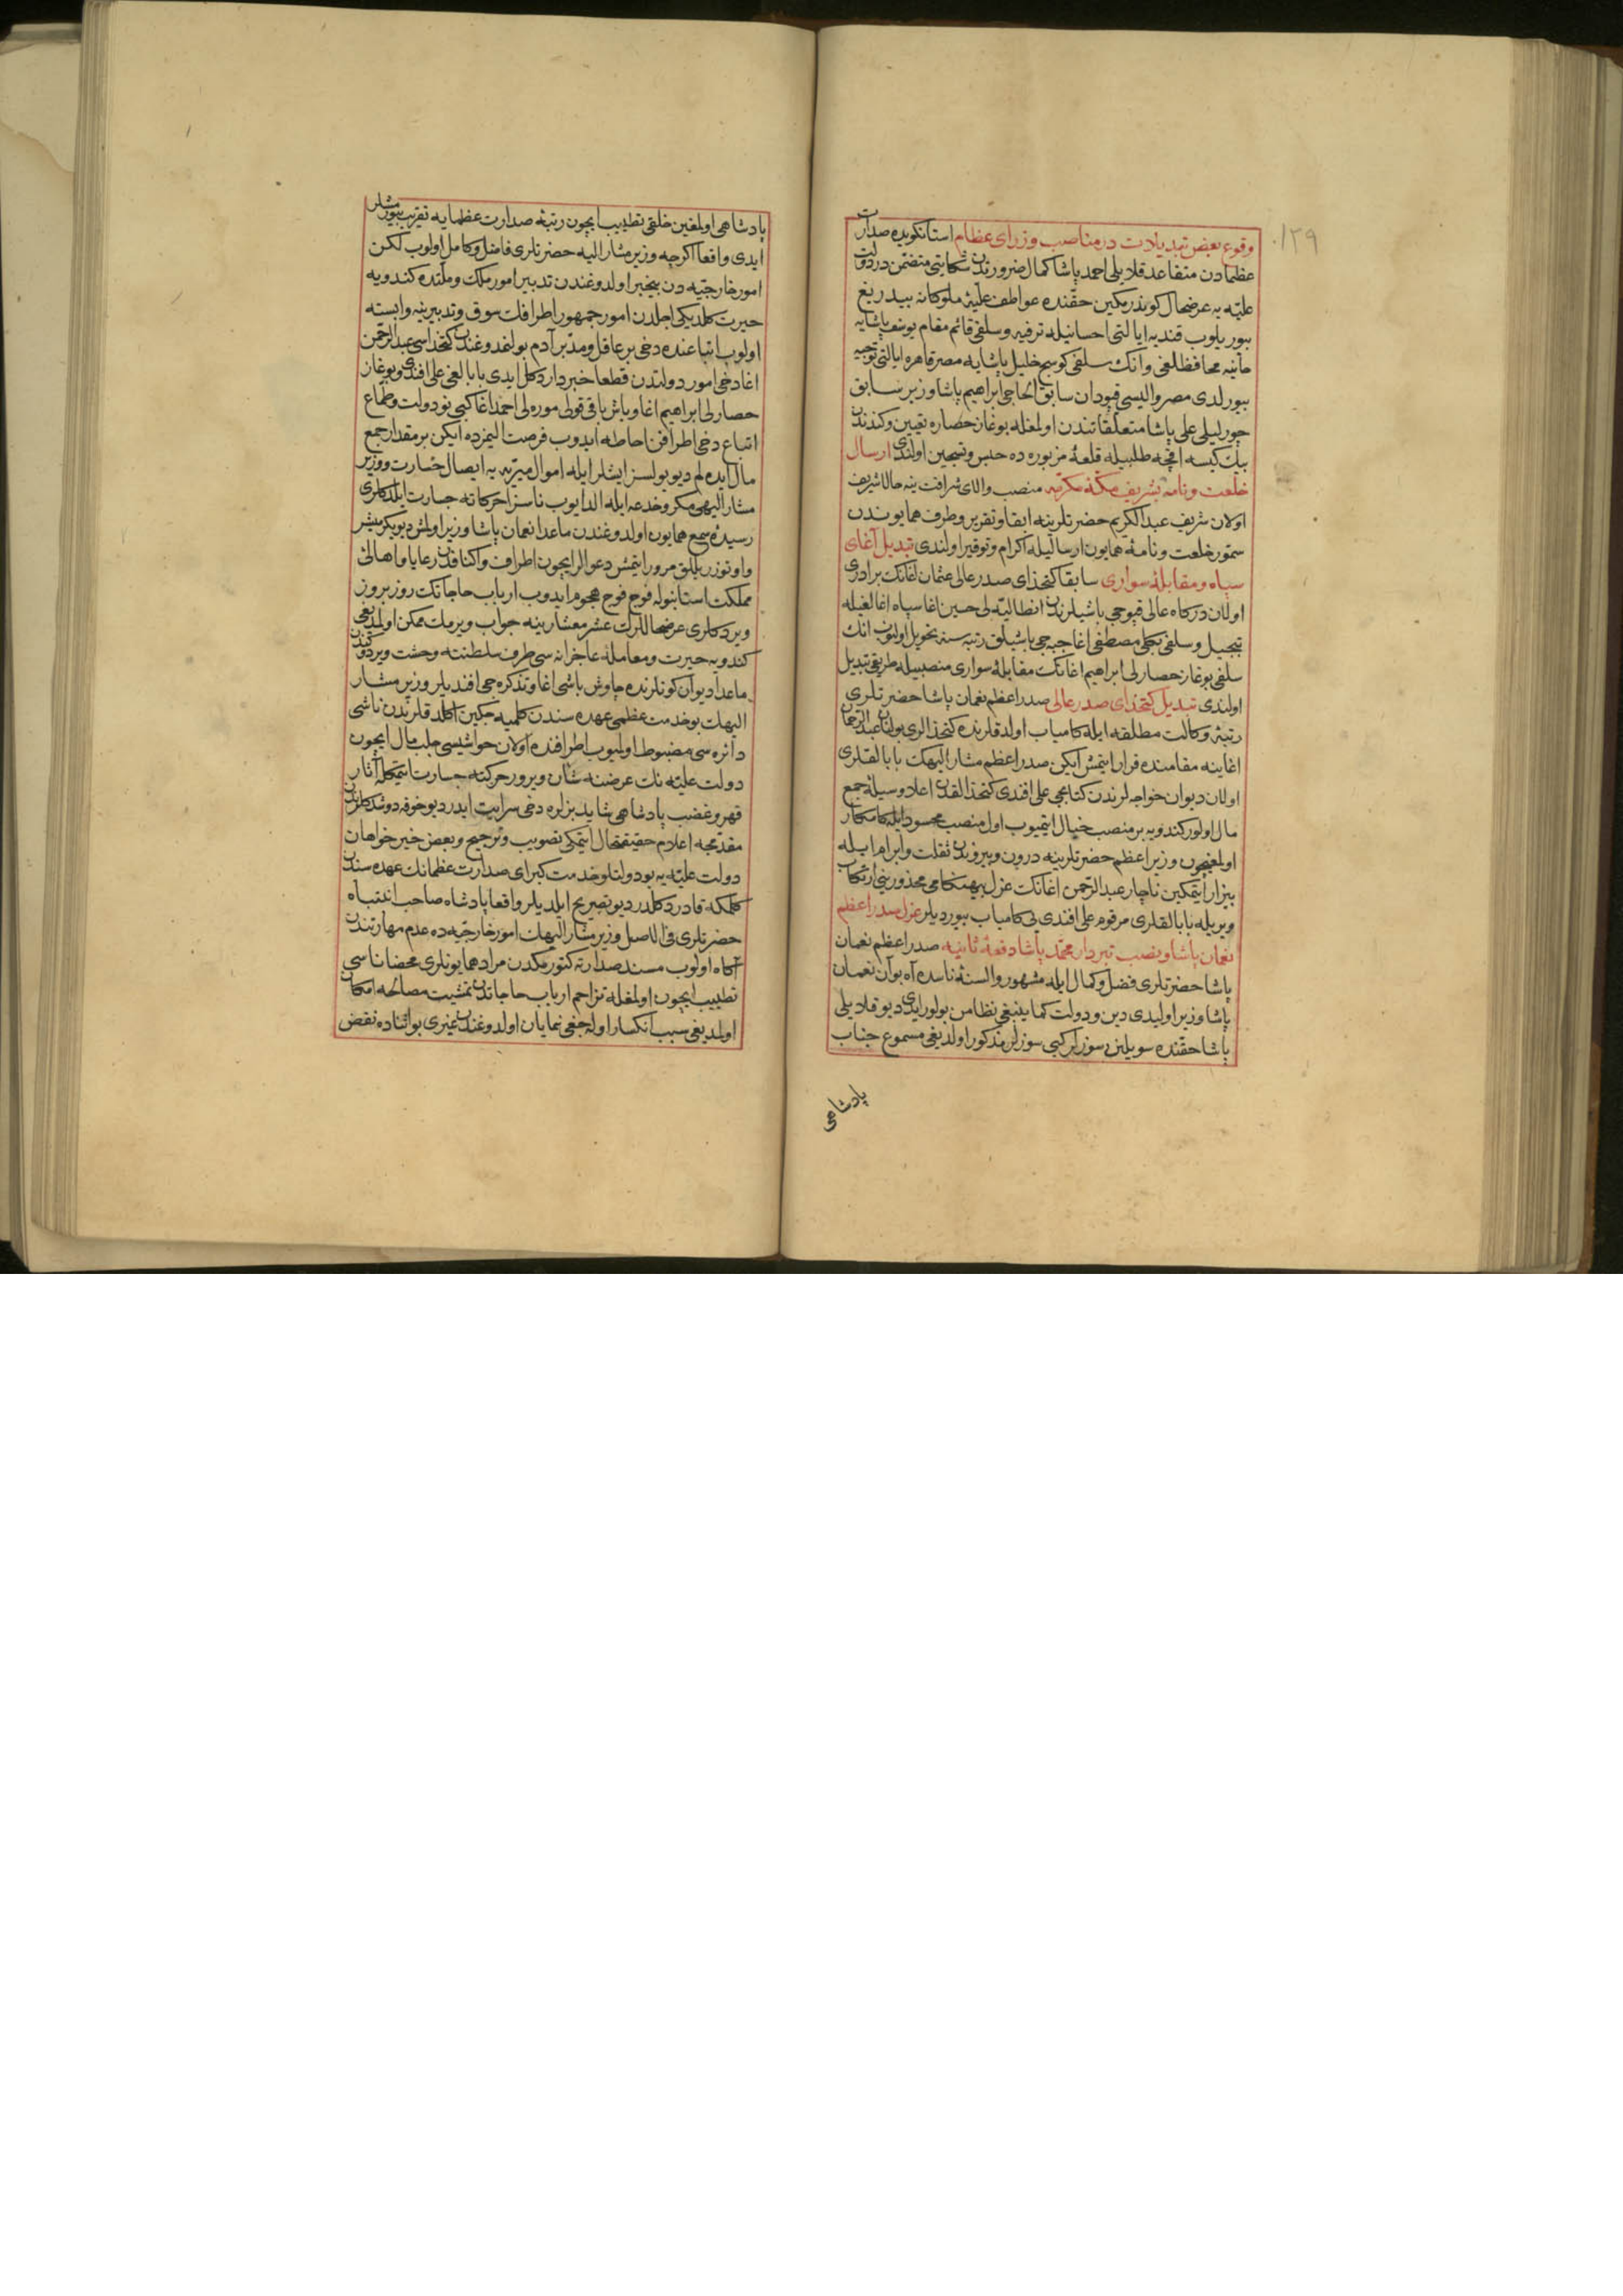 ١٢٩
وقوع بعض تبدیلات در مناصب وزرای عظام استانکویده صدارت
عظمادن متقاعد قلایلی احمد پاشا کمال ضرورتدن شکایتی متضمن در دولت
علیه یه عرضحال کوندرمکین حقنده عواطف علیۀ ملوکانه بیدریغ
بیوریلوب قندیه ایالتی احسانیله ترفیه و سلفی قائم مقام یوسف پاشایه
خانیه محافظلغی وانک سلفی کوسج خلیل پاشایه مصر قاهره ایالتی توجیه
بیورلدی مصر والیسی قپودان سابق الحاجی ابراهیم پاشا وزیر سابق
چورلیلی علی پاشا متعلقاتندن اولمغله بوغاز حصاره تعیین وکندندن
بیک کیسه اقچه طلبیله قلعۀ مزبوره ده حبس وتسجین اولندی ارسال
خلعت ونامه بشریف مکۀ مکرمه منصب والای شرافت ینه حالا شریف
اولان شریف عبدالکریم حضرتلرینه ابقا وتقریر وطرف همایوندن
سمور خلعت ونامۀ همایون ارسالیله اکرام وتوقیر اولندی تبدیل آغای
سپاه ومقابلۀ سواری سابقا کتخدای صدر عالی عثمان اغانک برادری
اولان درکاه عالی قپوجی باشیلرندن انطالیه لی حسین اغا سپاه اغالغیله
تبجیل وسلفی مصطفی اغا جبه جی باشیلق رتبه سنه تحویل اولنوب انک
سلفی بوغاز حصارلی ابراهیم اغانک مقابلۀ سواری منصبیله طریقی تبدیل
اولندی تبدیل کتخدای صدر عالی صدر اعظم نعمان پاشا حضرتلری
رتبۀ وکالت مطلقه ایله کامیاب اولدقلرنده کتخدالری بولنان عبدالرحمن
اغاینه مقامنده قرار ایتمش ایکن صدر اعظم مشار الیهک بابالقلری
اولان دیوان خواجه لرندن کتابجی علی افندی کتخدالقدن اعلا وسیلۀ جمع
مال اولور کندویه بر منصب خیال ایتمیوب اول منصب محسود ایله کامکار
اولمغیچون وزیر اعظم حضرتلرینه درون وبیروندن ثقلت وابرام ایله
بیزار ایتمکین ناچار عبدالرحمن اغانک عزل بیهنکامی محذورینی ارتکاب
ویریله بابالقلری مرقوم علی افندی یی کامیاب بیوردیلر عزل صدر اعظم
نعمان پاشا ونصب تبردار محمد پاشا دفعۀ ثانیه صدر اعظم نعمان
پاشا حضرتلری فضل وکمال ایله مشهور والسنۀ ناسده آه بو آن نعمان
پاشا وزیر اولیدی دین ودولت کما ینبغی نظامن بولور ایدی دیو قلایلی
پاشا حقنده سویلنن سوزلر کبی سوزلر مذکور اولدیغی مسموع جناب
پادشاهی
پادشاهی اولمغین خلقی تطییب ایچون رتبۀ صدارت عظمایه تقریب بیورمشلر
ایدی واقعا اکرچه وزیر مشار الیه حضرتلری فاضل وکامل اولوب لکن
امور خارجیه دن بیخبر اولدوغندن تدبیر امور ملک وملتده کندویه
حیرت کلدیکی اجلدن امور جمهور اطرافک سوق وتدبیرینه وابسته
اولوب اتباعنده دخی بر عاقل ومدبر آدم بولنمدوغندن کتخداسی عبدالرحمن
اغا دخی امور دولتدن قطعا خبردار دکل ایدی بابالغی علی افندی وبوغاز
حصارلی ابراهیم اغا وباش باقی قولی موره لی احمد اغا کبی نودولت وطماع
اتباع دخی اطرافن احاطه ایدوب فرصت الیمزده ایکن بر مقدار جمع
مال ایده لم دیو یولسز ایشلر ایله اموال میریه یه ایصال خسارت ووزیر
مشار الیهی مکر وخدعه ایله الدایوب ناسزا حرکاته جسارت ایلدکلری
رسیدۀ سمع همایون اولدوغندن ماعدا نعمان پاشا وزیر اولمش دیو یکرمیشر
واوتوزر ییللق مرور ایتمش دعوالر ایچون اطراف واکنافدن رعایا واهالئ
مملکت استانبوله فوج فوج هجوم ایدوب ارباب حاجاتک روز بروز
ویردکلری عرضحاللرک عشر معشارینه جواب ویرمک ممکن اولمدیغی
کندویه حیرت ومعاملۀ عاجزانه سی طرف سلطنته وحشت ویردوکندن
ماعدا دیوان کونلرنده چاوش باشی اغا وتذکره جی افندیلر وزیر مشار
الیهک بو خدمت عظمی عهده سندن کلمیه جکین اکلدقلرندن ناشی
دائره سی مضبوط اولمیوب اطرافنده اولان حواشیسی جلب مال ایچون
دولت علیه نک عرضنه شان ویرور حرکته جسارت ایتمکله آثار
قهر وغضب پادشاهی شاید بزلره دخی سرایت ایدر دیو خوفه دوشدکلرندن
مقدمجه اعلام حقیقتحال ایتمکی تصویب وترجیح وبعض خیرخواهان
دولت علیه یه بو دولتلو خدمت کبرای صدارت عظمانک عهده سندن
کلمکه قادر دکلدر دیو تصریح ایلدیلر واقعا پادشاه صاحب انتباه
حضرتلری فی الاصل وزیر مشار الیهک امور خارجیه ده عدم مهارتندن
آکاه اولوب مسند صدارته کتورمکدن مراد همایونلری محضا ناسی
تطییب ایچون اولمغله تزاحم ارباب حاجاتدن تمشیت مصالحه امکان
اولمدیغی سبب انکسار اوله جغی نمایان اولدوغندن غیری بو اثناده نقض